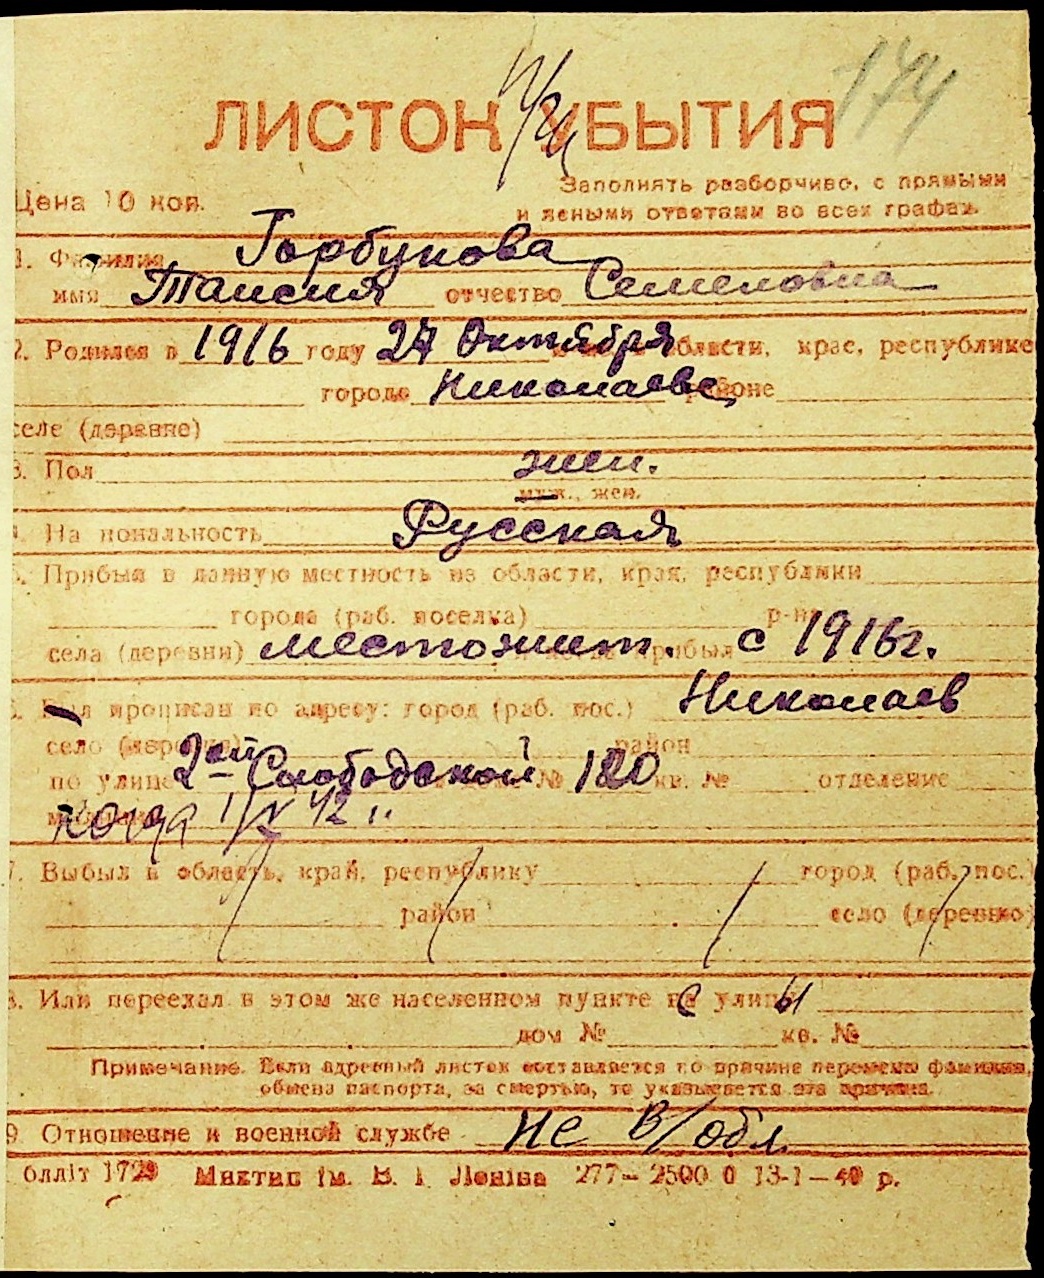 174
ЛИСТОК УБЫТИЯ
Цена 10 коп.
Заполнять разборчиво, с прямыми
и ясными ответами во всех графах
1. Фамилия Горбунова
имя Таисия отчество Семеновна
2. Родился в 1916 году 24 Октября области, крае, республике
городе Николаеве районе
селе (деревне)
3. Пол жен.
муж., жен.
4. Национальность Русская
5. Прибыл в данную местность из области, края, республики
города (раб. поселка) р-на
села (деревни) местожит. прибыл с 1916 г.
6. Был прописан по адресу: город (раб. пос.) Николаев
село (деревня) район
по улице 2ой Слободской № 180 кв. № отделение
милиции когда 1/IV 42 г.
7. Выбыл в область, край, республику город (раб. пос.)
район село (деревню)
8. Или переехал в этом же населенном пункте с улицы
дом № кв. №
Примечание. Если адресный листок составляется по причине перемены фамилии,
обмена паспорта, за смертью, то указывается эта причина.
9. Отношение к военной службе не в/обл.
блліт 1729 Миктип ім. В. І. Леніна 277—2500 0 13-1—40 р.